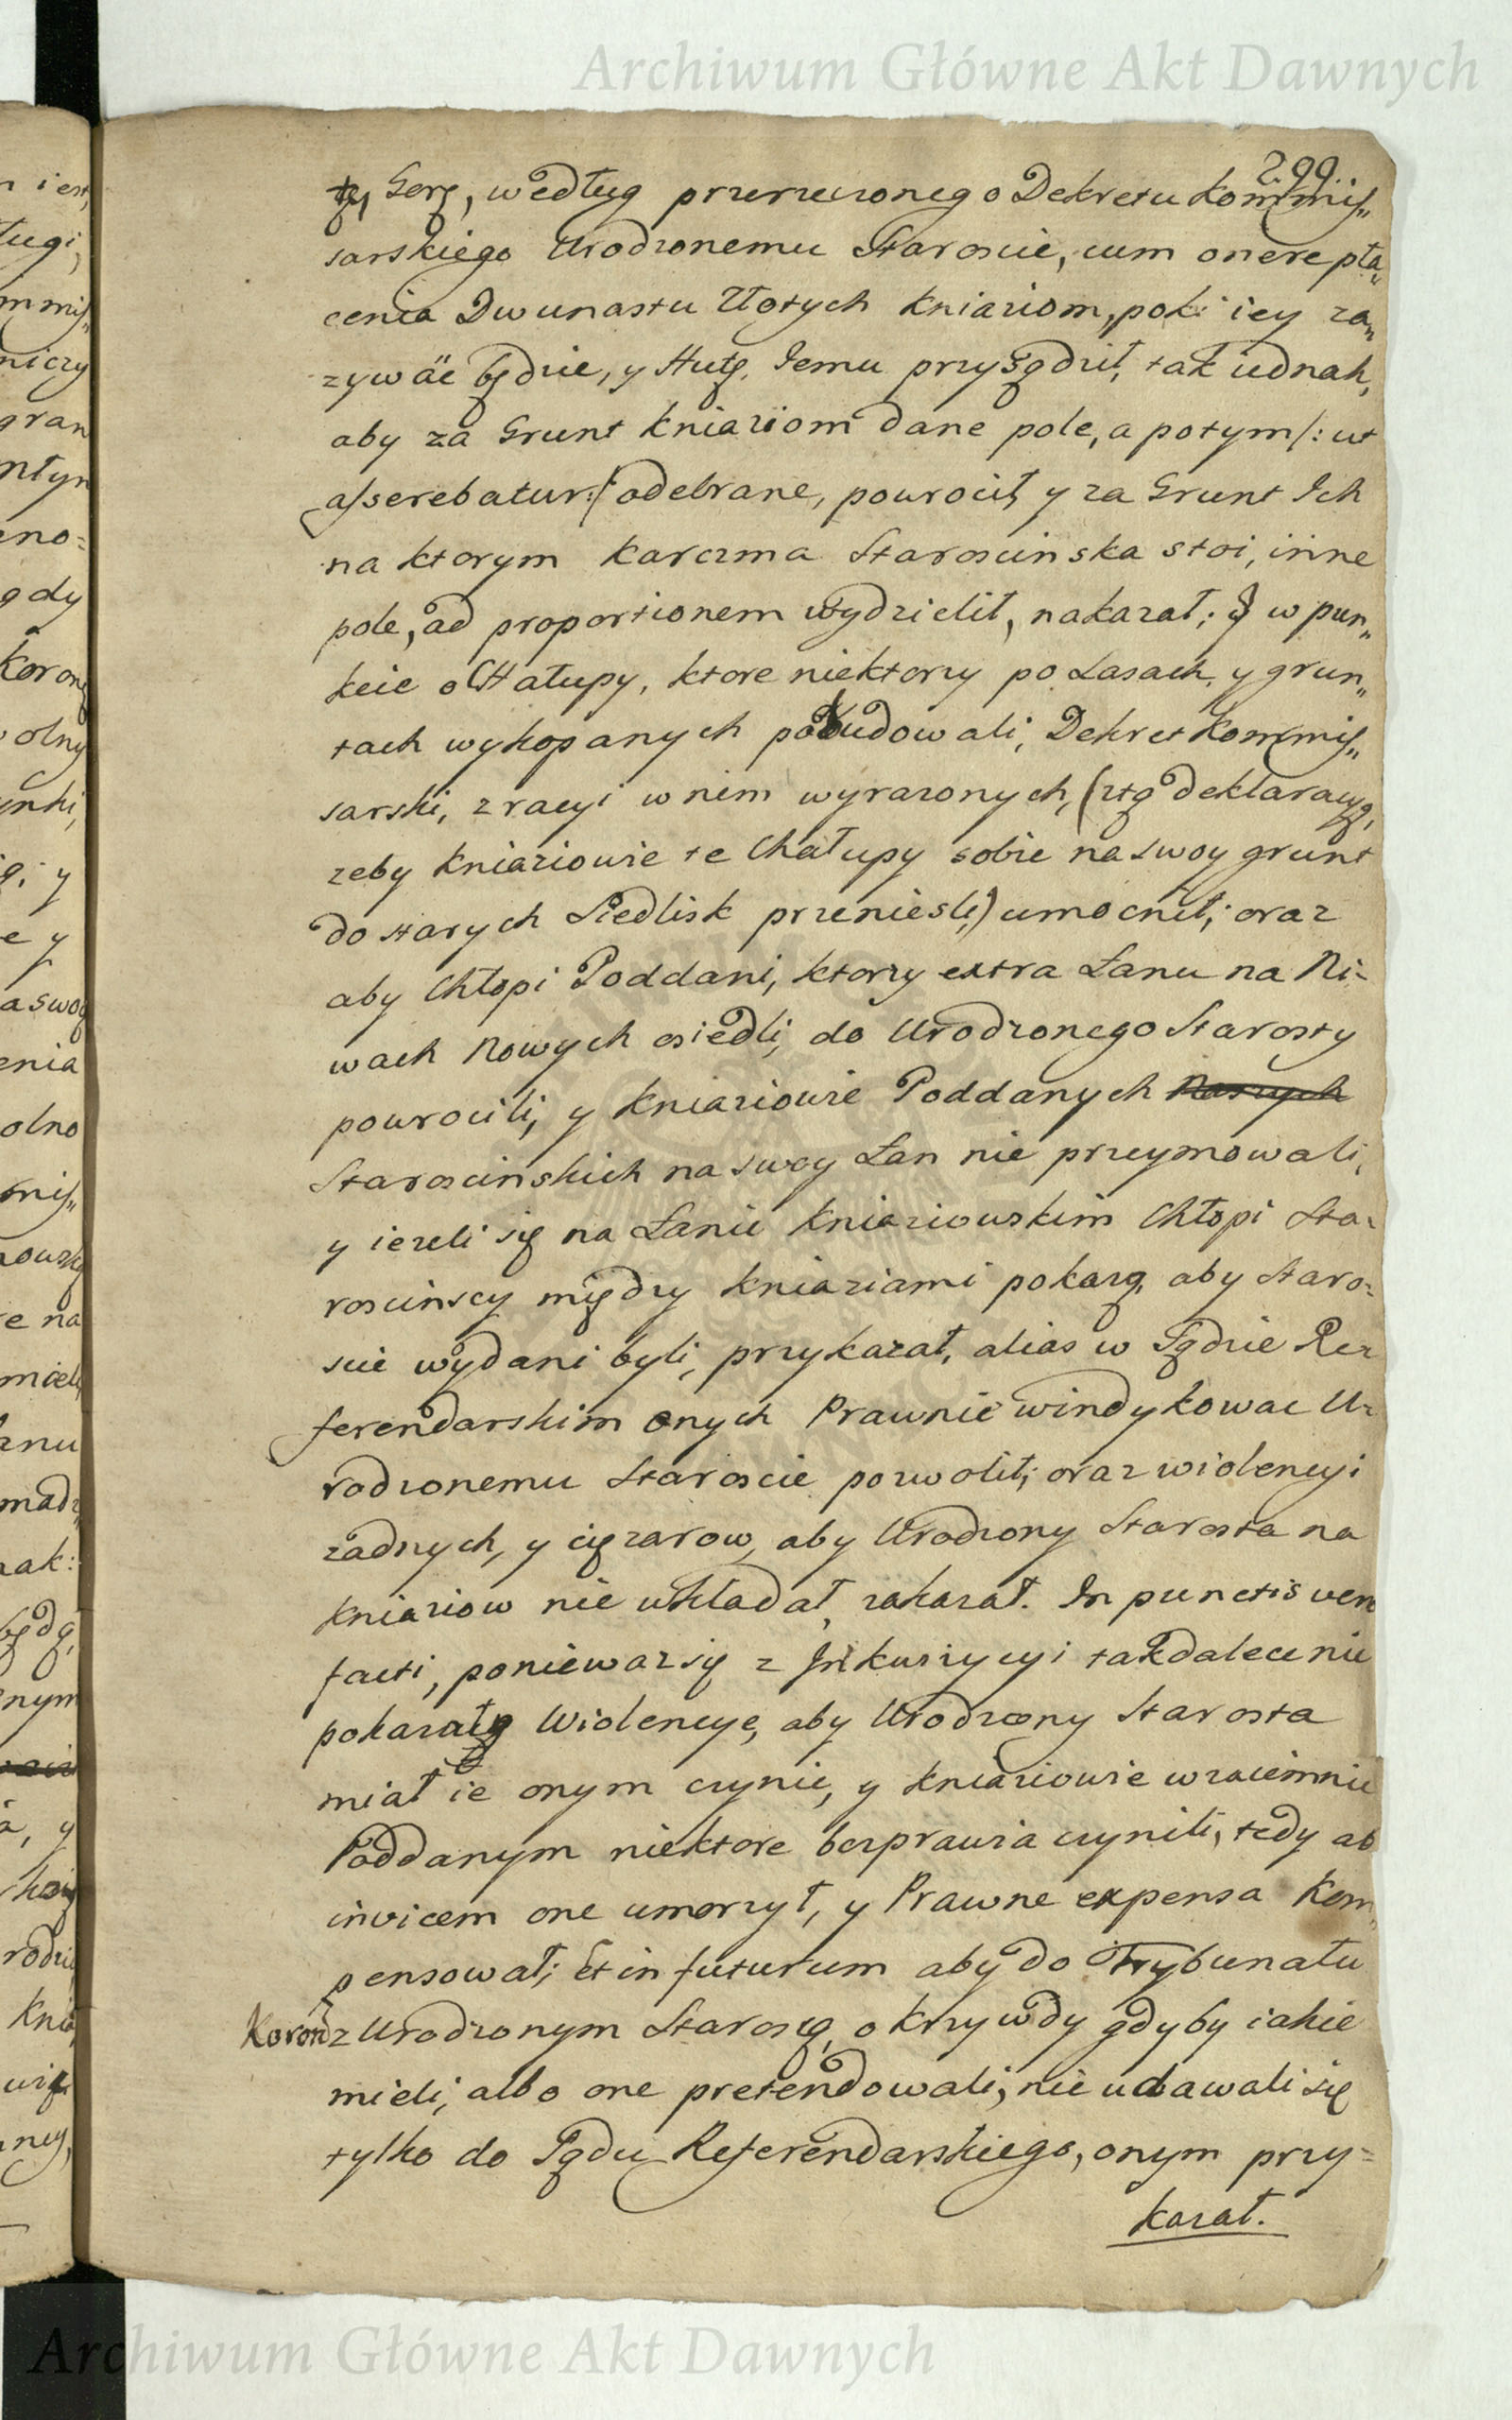 Archiwum Główne Akt Dawnych
299
tę Gorę, według przerzeczonego Dekretu Kommis„
sarskiego Urodzonemu Staroscie, cum onere pła„
cenia Dwunastu Złotych Kniaziom, poki iey za„
zywać będzie, y Hutę Jemu przysądził, tak iednak,
aby za Grunt Kniaziom dane pole, a potym /: ut
asserebatur :/ odebrane, powrocił, y za Grunt Ich
na ktorym Karczma Staroscinska stoi, inne
pole, ad proportionem wydzielił, nakazał; Y w pun„
kcie o Chałupy, ktore niektorzy po Lasach, y grun„
tach wykopanych pobudowali, Dekret Kommis„
sarski, z racyi w nim wyrazonych, (z tą deklaracyą,
zeby Kniaziowie te Chałupy sobie na swoy grunt
do starych Siedlisk przeniesli,) umocnił; oraz
aby Chłopi Poddani, ktorzy extra Łanu na Ni-
wach Nowych osiedli, do Urodzonego Starosty
powrocili, y Kniaziowie Poddanych Naszych
Staroscinskich na swoy Łan nie przeymowali,
y iezeli się na Łanie Kniaziowskim Chłopi Sta-
roscinscy między Kniaziami pokazą, aby Staro-
scie wydani byli, przykazał, alias w Sądzie Re-
ferendarskim onych Prawnie windykowac U-
rodzonemu Staroscie pozwolił; oraz wiolencyi
zadnych, y cięzarow, aby Urodzony Starosta na
Kniaziow nie wkładał, zakazał. In punctis vero
facti, poniewaz się z Inkwizycyi tak dalece nie
pokazały Wiolencye, aby Urodzony Starosta
miał ie onym czynic, y Kniaziowie wzaiemnie
Poddanym niektore bezprawia czynili, tedy ab
invicem one umorzył, y Prawne expensa Kom„
pensował; Et in futurum aby do Trybunału
Koron z Urodzonym Starostą, o Krzywdy gdyby iakie
mieli, albo one pretendowali, nie udawali się
tylko do Sądu Referendarskiego, onym przy-
kazał.
Archiwum Główne Akt Dawnych